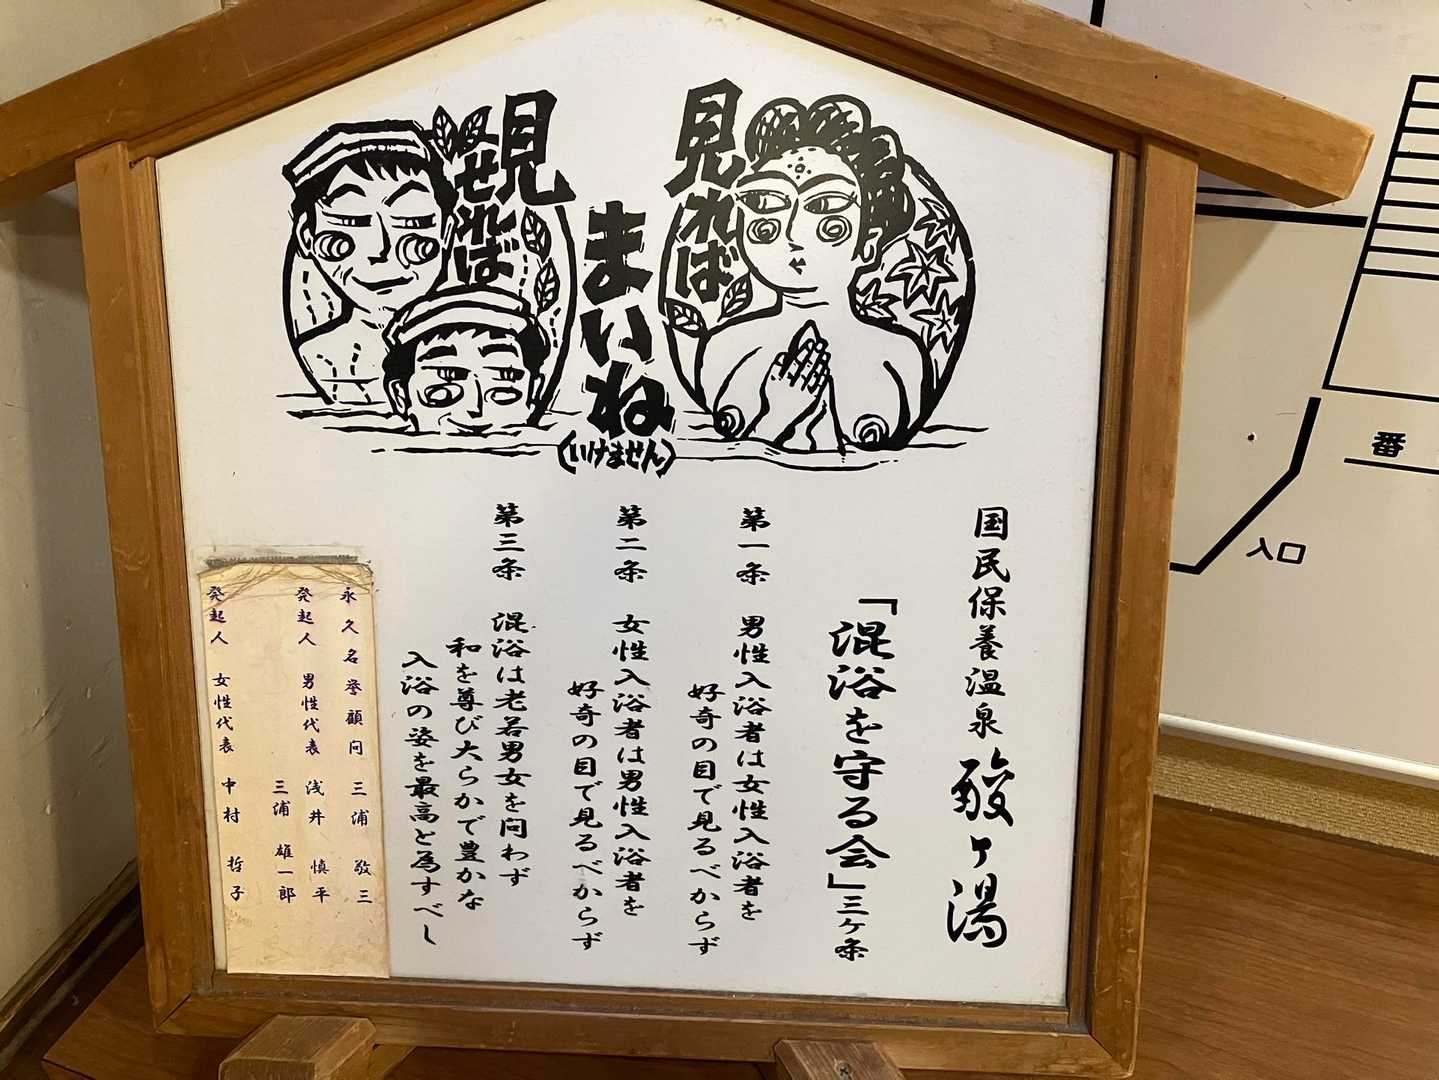 見れば
まいね
(いけません)
見せれば
国民保養温泉 酸ヶ湯
「混浴を守る会」三ケ条
第一条 男性入浴者は女性入浴者を
好奇の目で見るべからず
第二条 女性入浴者は男性入浴者を
好奇の目で見るべからず
第三条 混浴は老若男女を問わず
和を尊び大らかで豊かな
入浴の姿を最高と為すべし
永久名誉顧問 三浦 敬三
発起人 男性代表 浅井 慎平
三浦 雄一郎
発起人 女性代表 中村 哲子
番
入口